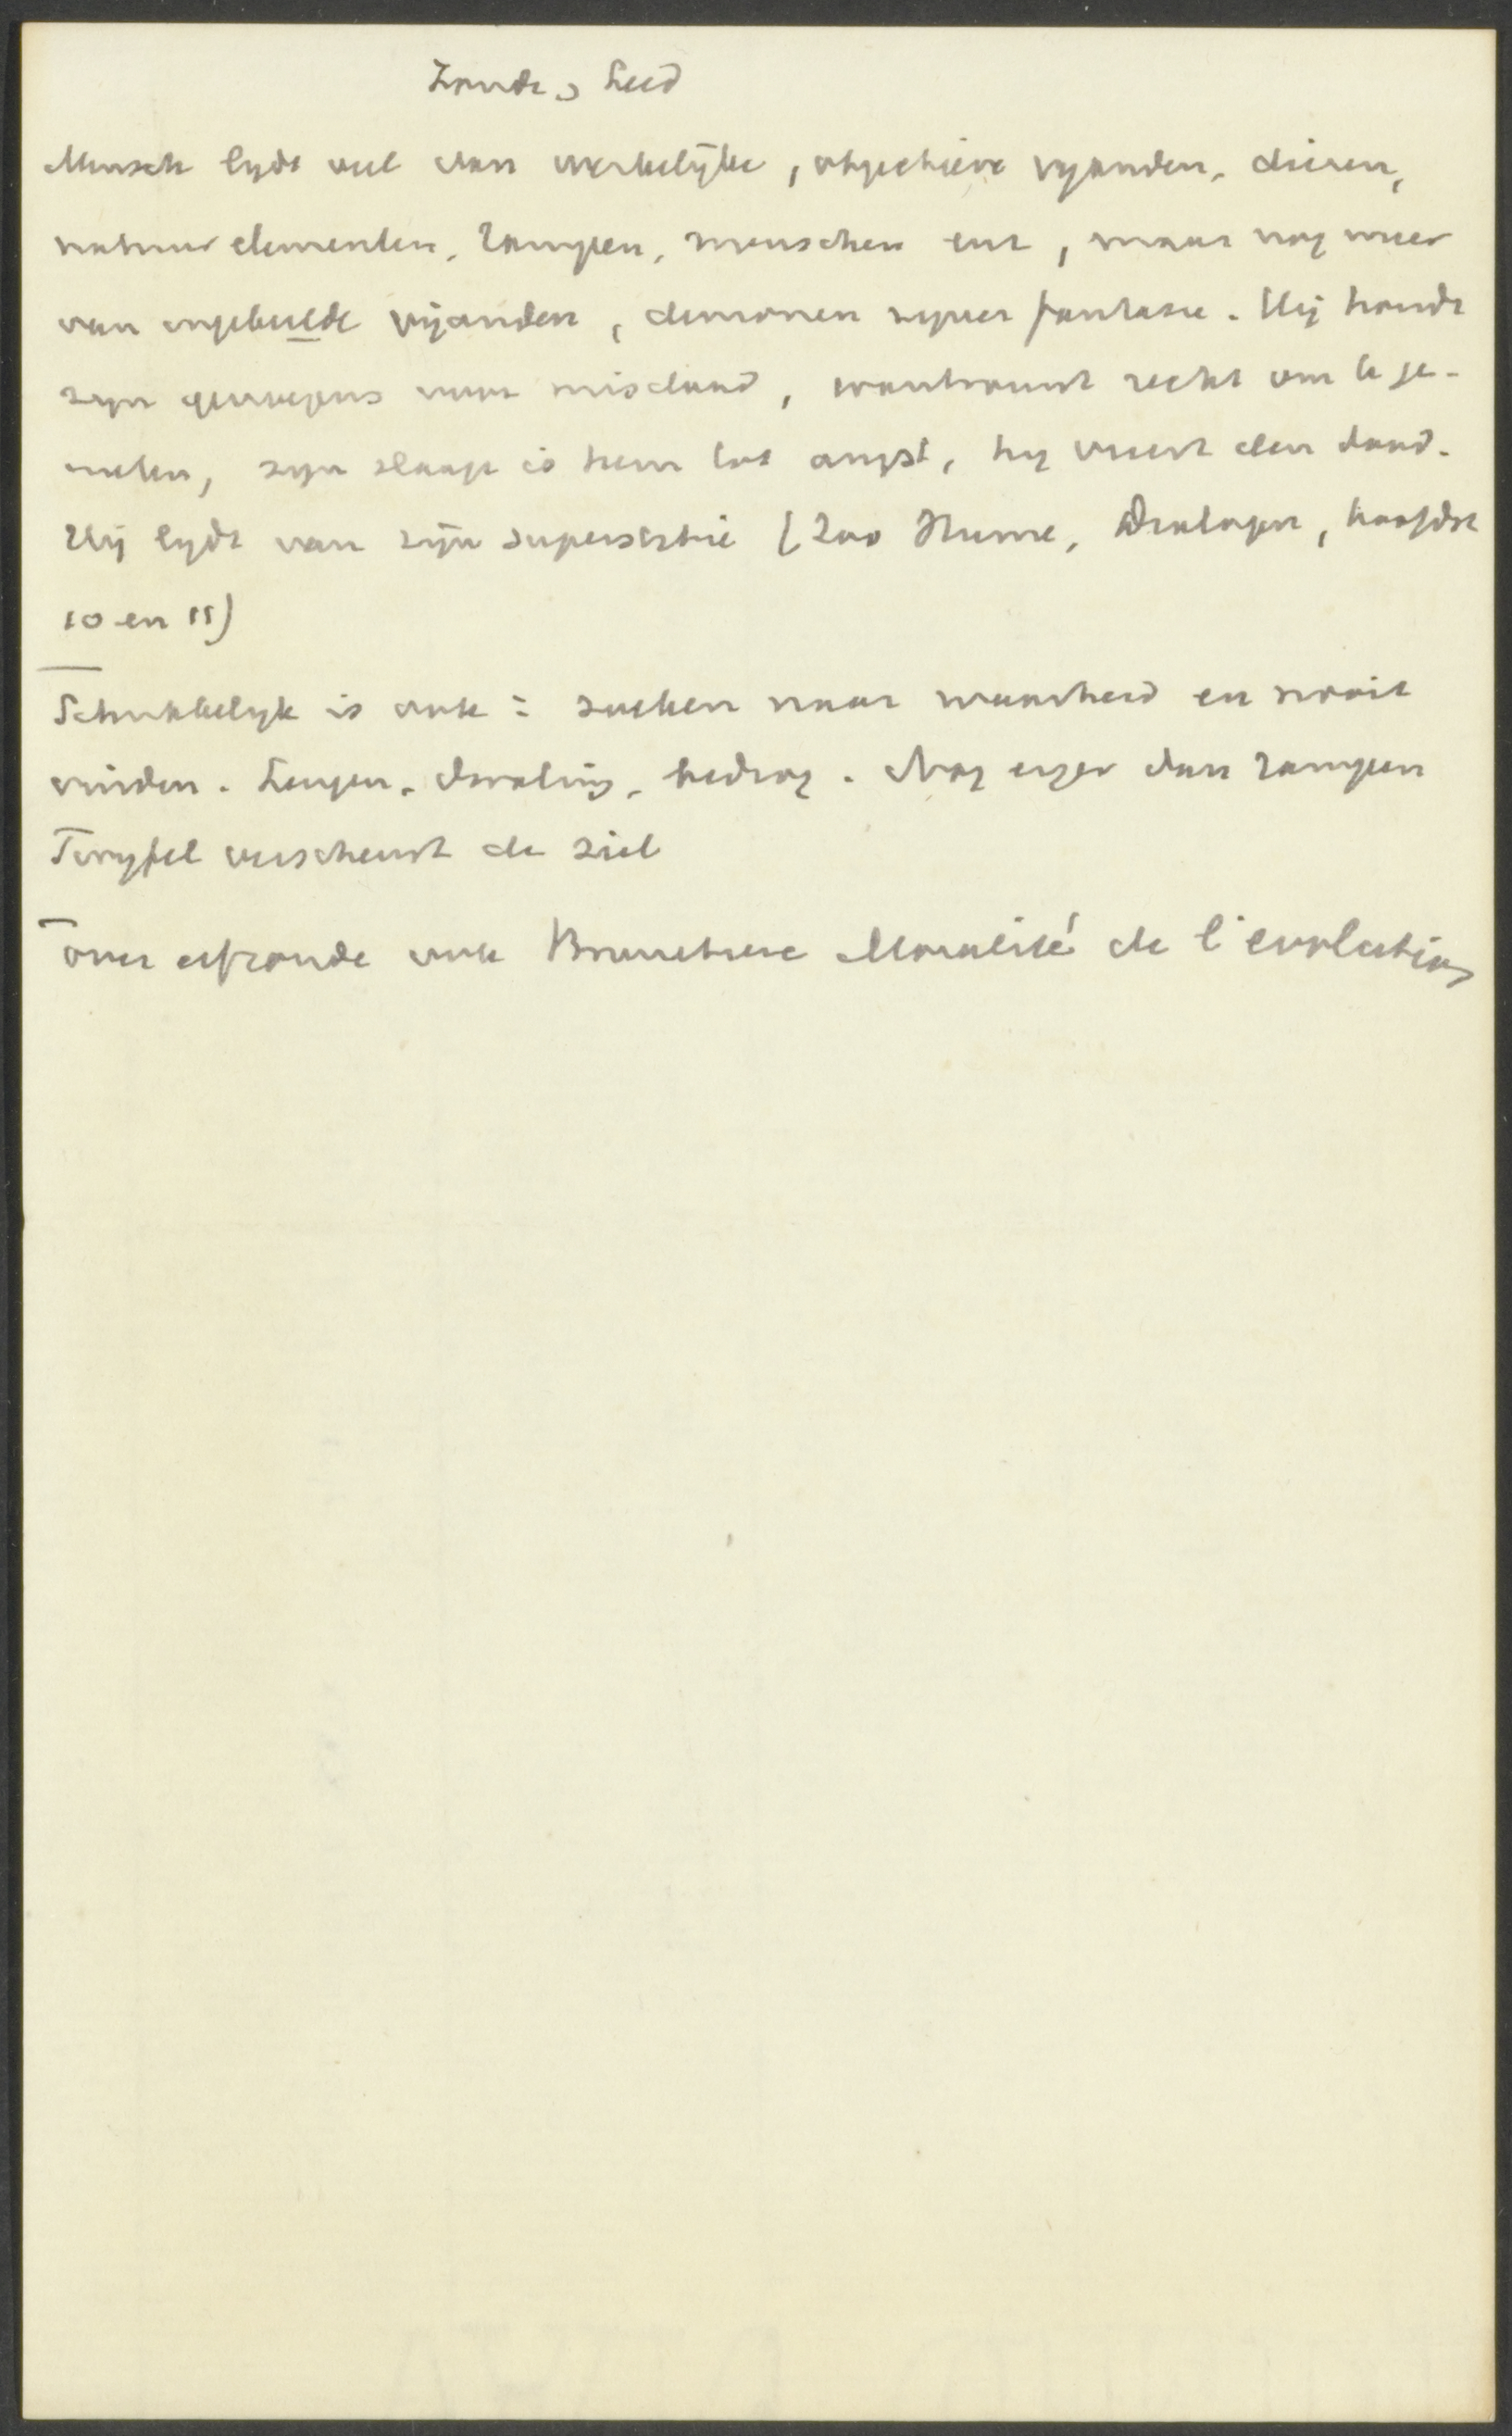 Zonde, Leed
Mensch lydt veel van werkelijke, objectieve vyanden, dieren,
natuurelementen, rampen, menschen enz, maar nog meer
van ingebeelde vijanden, demonen zyner fantasie. Hij houdt
zyn genoegens voor misdaad, wantrouwt recht om te ge-
nieten, zyn slaap is hem tot angst, hy vreest den dood.
Hij lydt van zijn superstitie (Zoo Hume, Dialogen, hoofdst
10 en 11)
Schrikkelyk is ook: zoeken naar waarheid en nooit
vinden. Leugen, dwaling, bedrog. Nog erger dan rampen
Twyfel verscheurt de ziel
over erfzonde ook Brunetiere Moralité de l'evolution